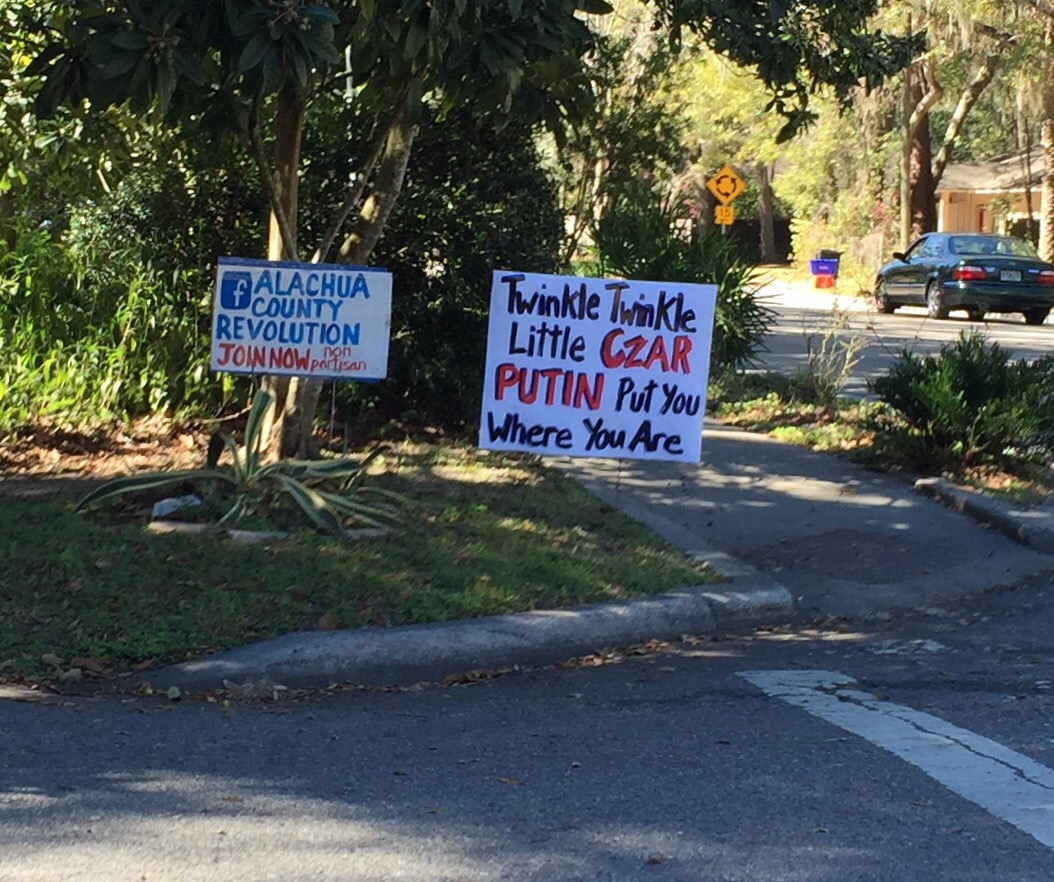 f ALACHUA
COUNTY
REVOLUTION
JOIN NOW non partisan
Twinkle Twinkle
Little CZAR
PUTIN Put You
Where You Are
15